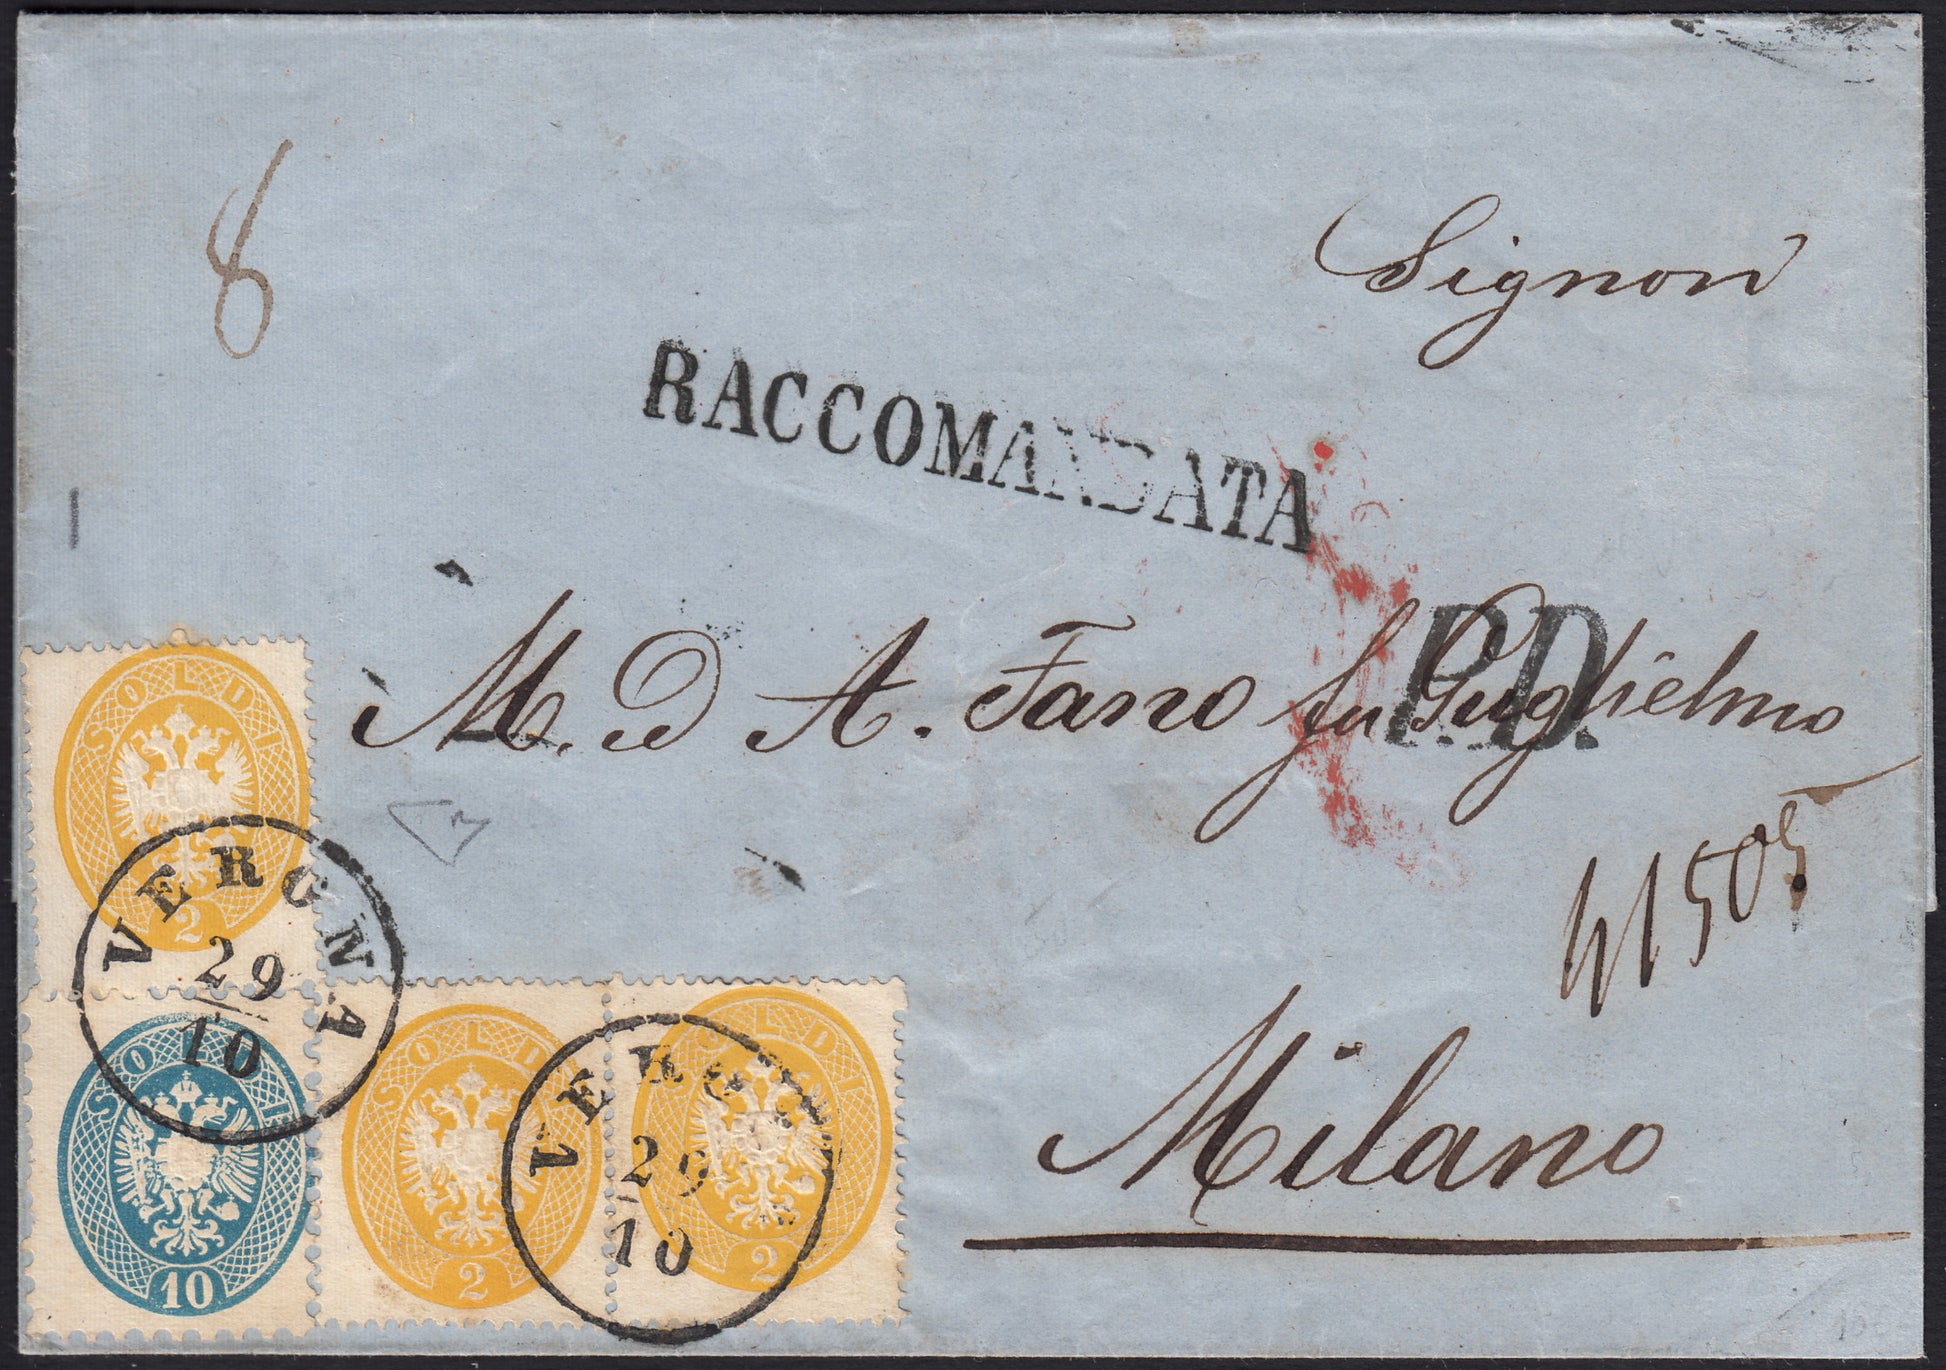 8
Signori
RACCOMANDATA
P.D.
M. D A. Fano fu Guglielmo
Milano
SOLDI
2
VERGNA
29
10
SOLDI
10
SOLDI
2
SOLDI
2
VERG
29
10